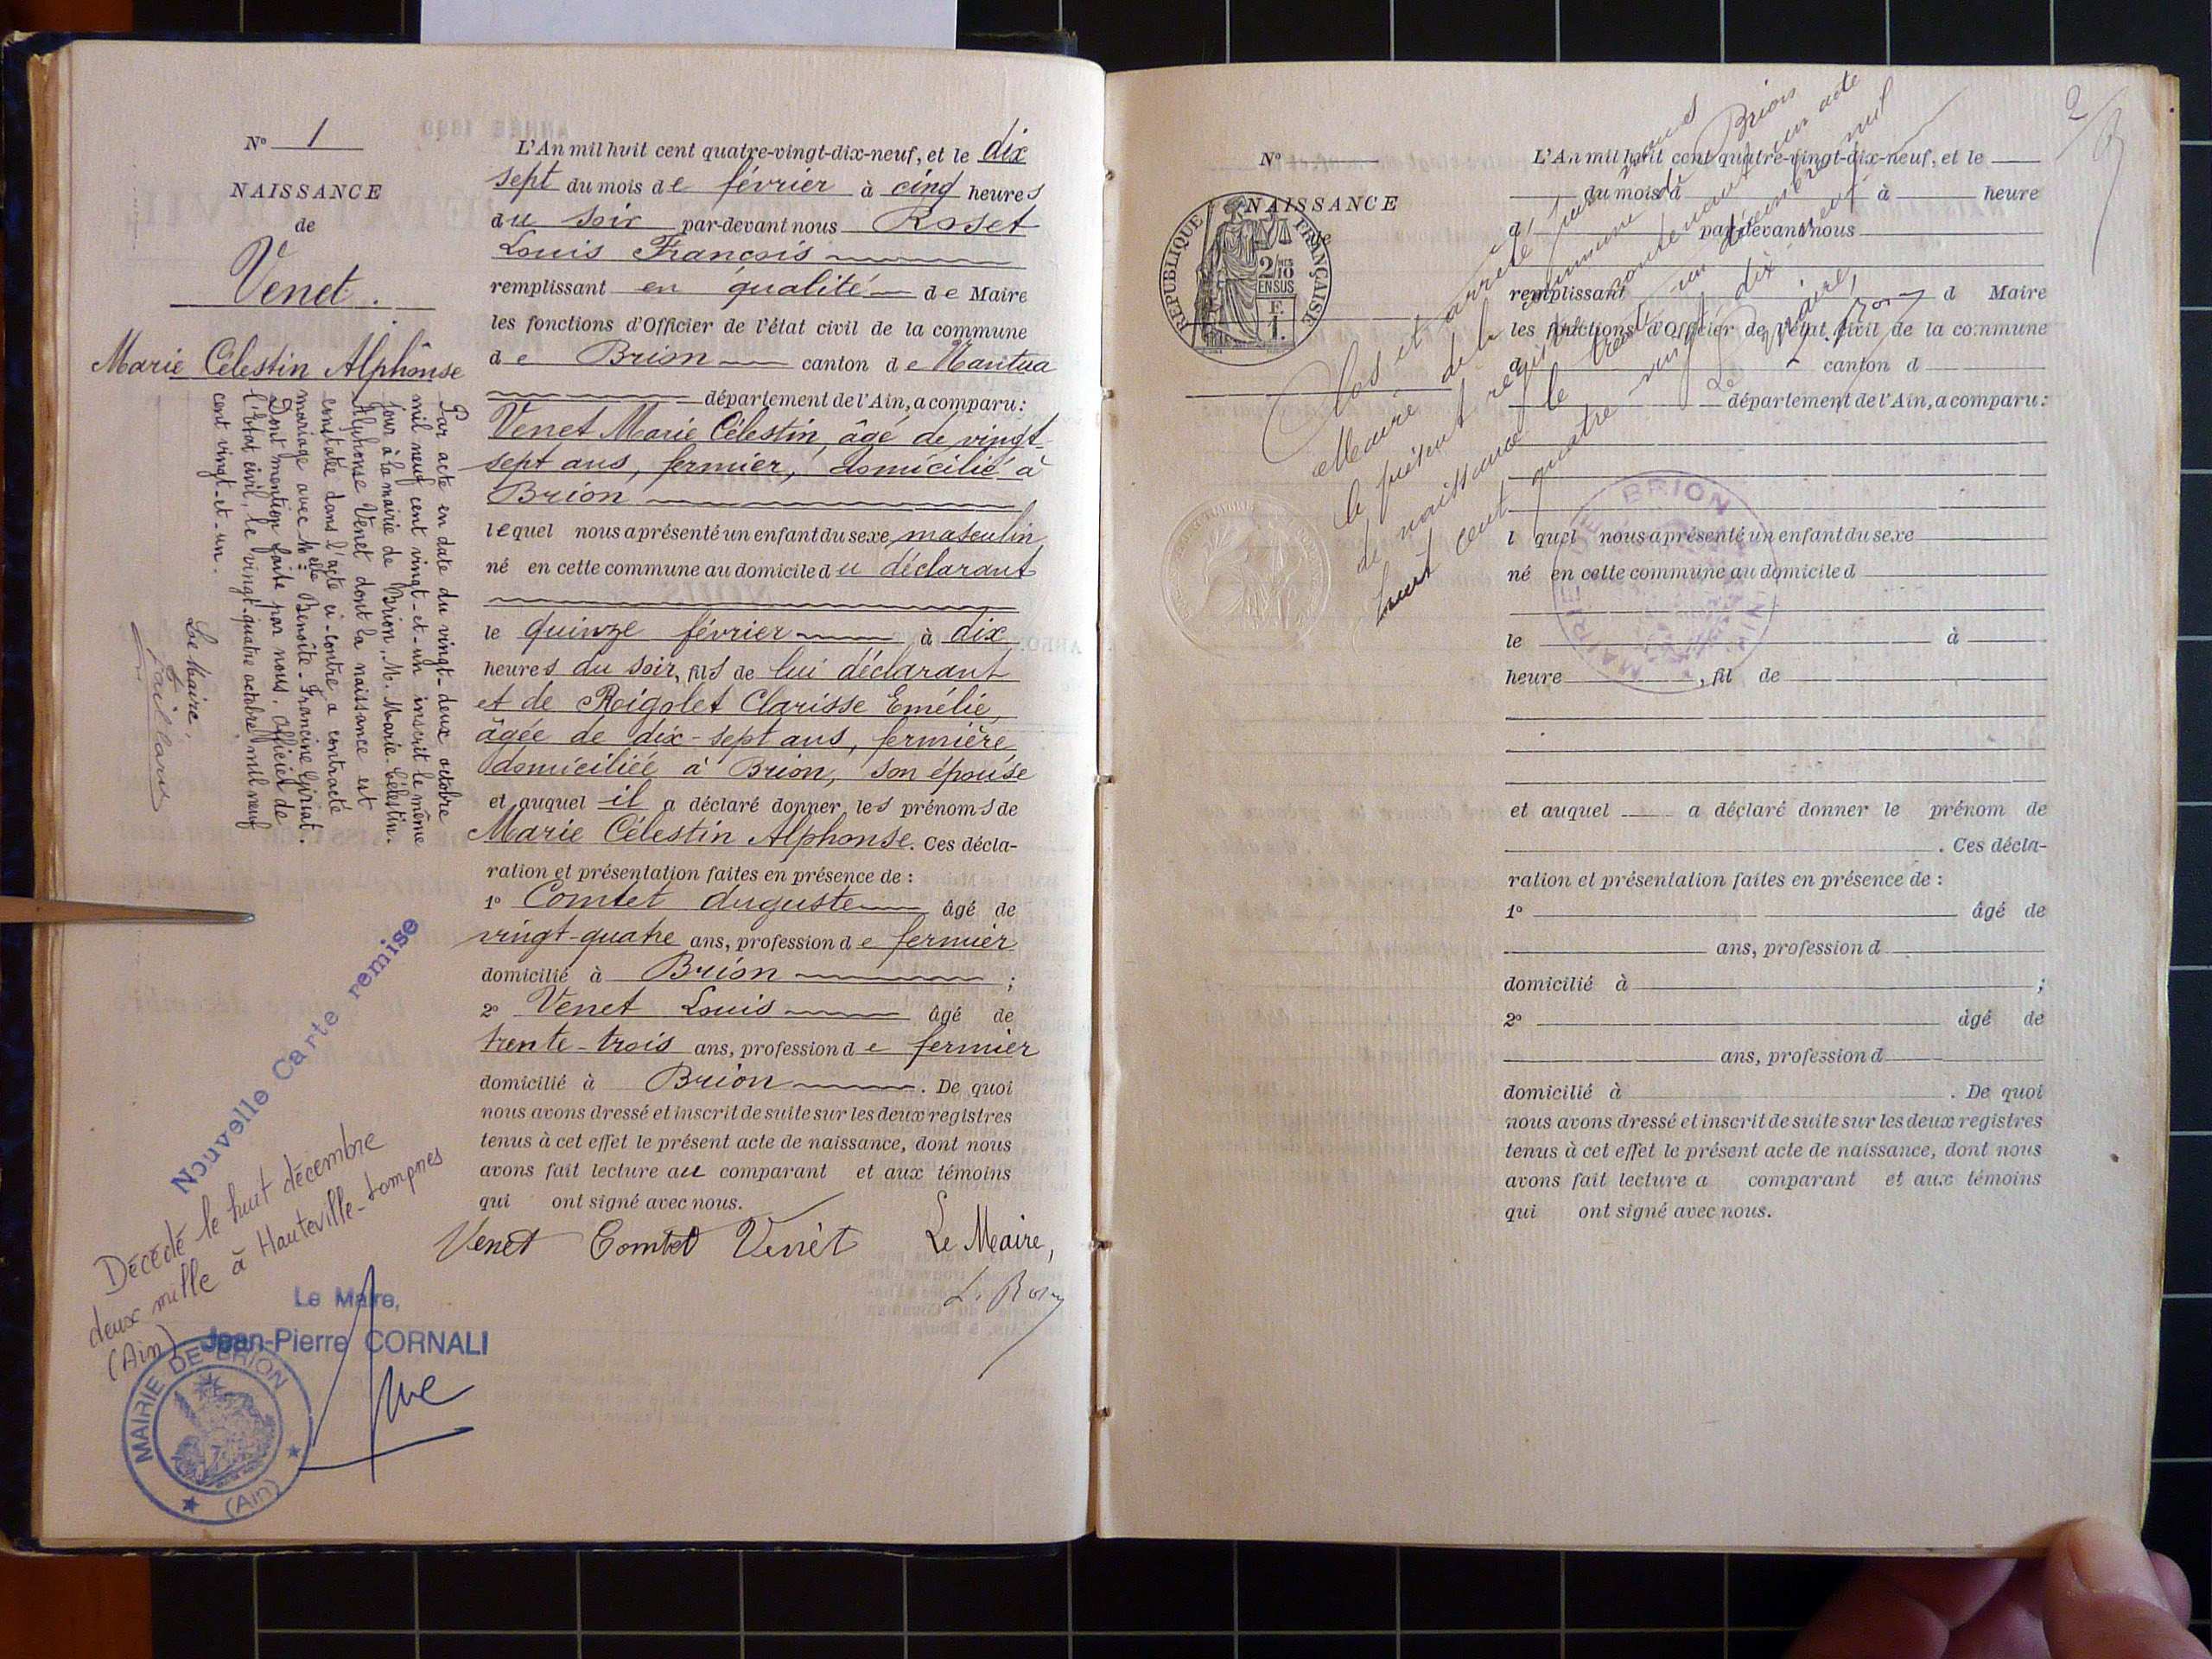 N° 1
NAISSANCE
de
Venet.
Marie Célestin Alphonse
Par acte en date du vingt-deux octobre
mil neuf cent vingt-et-un inscrit le même
jour à la mairie de Brion, M. Marie-Célestin-
Alphonse Venet dont la naissance est
constatée dans l'acte ci-contre a contracté
mariage avec Melle Benoîte-Francine Giriat.
Dont mention faite par nous, Officier de
l'État civil, le vingt-quatre octobre mil neuf
cent vingt-et-un.
Le Maire,
Nouvelle Carte remise
Décédé le huit décembre
deux mille à Hauteville-Lompnes
(Ain)
Le Maire,
Jean-Pierre CORNALI
MAIRIE DE BRION
(Ain)
L'An mil huit cent quatre-vingt-dix-neuf, et le dix
sept du mois de février à cinq heures
du soir par-devant nous Roset
Louis François
remplissant en qualité de Maire
les fonctions d'Officier de l'état civil de la commune
de Brion canton de Nantua
département de l'Ain, a comparu:
Venet Marie Célestin, âgé de vingt-
sept ans, fermier, domicilié à
Brion
lequel nous a présenté un enfant du sexe masculin
né en cette commune au domicile du déclarant
le quinze février à dix
heures du soir, fils de lui déclarant
et de Reigolet Clarisse Emélie,
âgée de dix-sept ans, fermière,
domiciliée à Brion, son épouse
et auquel il a déclaré donner les prénoms de
Marie Célestin Alphonse. Ces décla-
ration et présentation faites en présence de :
1° Comtet Auguste âgé de
vingt-quatre ans, profession de fermier
domicilié à Brion ;
2° Venet Louis âgé de
trente-trois ans, profession de fermier
domicilié à Brion . De quoi
nous avons dressé et inscrit de suite sur les deux registres
tenus à cet effet le présent acte de naissance, dont nous
avons fait lecture au comparant et aux témoins
qui ont signé avec nous.
Venet Comtet Venet Le Maire,
L. Roset
2
N°
NAISSANCE
de
REPUBLIQUE FRANÇAISE
2/10
EN SUS
F.
1.
Clos et arrêté par nous
Maire de la commune de Brion
le présent registre contenant un acte
de naissance le trente un décembre mil
huit cent quatre vingt dix neuf
Le Maire,
L. Roset
MAIRIE DE BRION
L'An mil huit cent quatre-vingt-dix-neuf, et le
du mois d à heure
d par-devant nous
remplissant d Maire
les fonctions d'Officier de l'état civil de la commune
d canton d
département de l'Ain, a comparu:
l quel nous a présenté un enfant du sexe
né en cette commune au domicile d
le à
heure , fil de
et auquel a déclaré donner le prénom de
. Ces décla-
ration et présentation faites en présence de :
1° âgé de
ans, profession d
domicilié à ;
2° âgé de
ans, profession d
domicilié à . De quoi
nous avons dressé et inscrit de suite sur les deux registres
tenus à cet effet le présent acte de naissance, dont nous
avons fait lecture a comparant et aux témoins
qui ont signé avec nous.